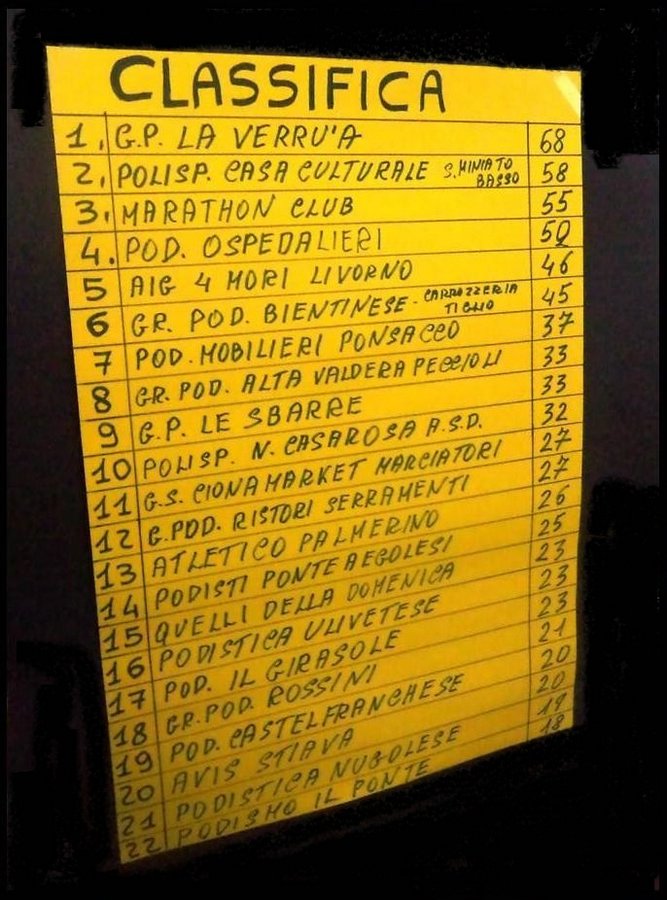 CLASSIFICA
1. G.P. LA VERRU'A 68
2. POLISP. CASA CULTURALE S. MINIATO BASSO 58
3. MARATHON CLUB 55
4. POD. OSPEDALIERI 50
5 AIG 4 MORI LIVORNO 46
6 GR. POD. BIENTINESE - CARROZZERIA TIGLIO 45
7 POD. MOBILIERI PONSACCO 37
8 GR. POD. ALTA VALDERA PECCIOLI 33
9 G.P. LE SBARRE 33
10 POLISP. N. CASAROSA A.S.D. 32
11 G.S. CIONAMARKET MARCIATORI 27
12 G. POD. RISTORI SERRAMENTI 27
13 ATLETICO PALMERINO 26
14 PODISTI PONTEAEGOLESI 25
15 QUELLI DELLA DOMENICA 23
16 PODISTICA ULIVETESE 23
17 POD. IL GIRASOLE 23
18 GR. POD. ROSSINI 21
19 POD. CASTELFRANCHESE 20
20 AVIS STIAVA 20
21 PODISTICA NUGOLESE 19
22 PODISMO IL PONTE 18